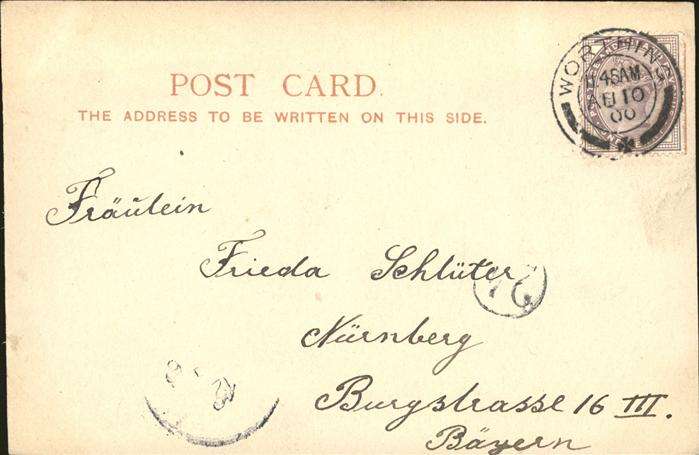 POST CARD.
THE ADDRESS TO BE WRITTEN ON THIS SIDE.
WORTHING
45AM
10
00
Fräulein
Frieda Schlüter
24
Nürnberg
Burgstrasse 16 III.
Bayern